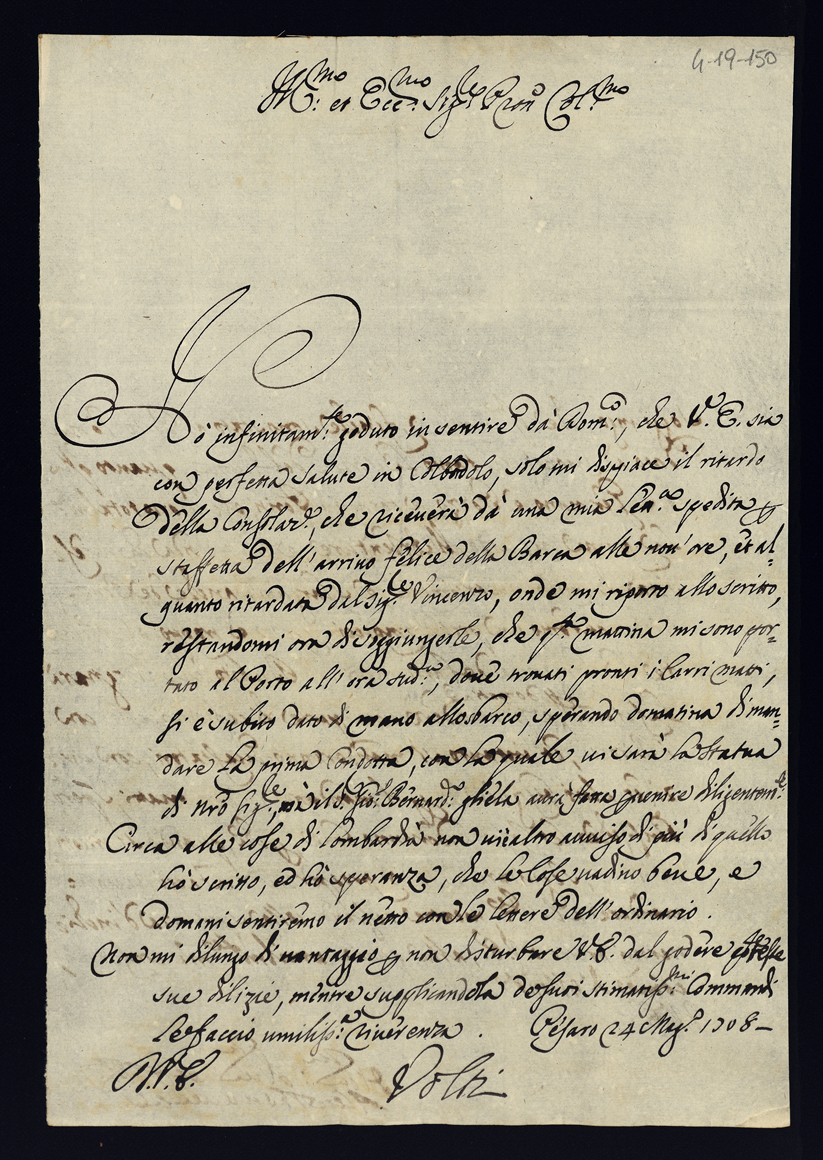 4-19-150
Ill.mo et Ecc.mo Sig.re Pron Col.mo
Hò infinitam.te goduto in sentire dà Dom.co, che V. E. sia
con perfetta salute in Colbodolo, solo mi dispiace il ritardo
della Consolaz.e, che riceverà dà una mia spedita p
staffetta dell'arrivo felice della Barca alle non'ore, et al=
quanto ritardata dal Sig.re Vincenzo, onde mi riporto allo scritto,
restandomi ora di soggiungerle, che q.sta mattina mi sono por=
tato al Porto all'ora sud.a, dove trovati pronti i Carri matti,
si è subito dato di mano allo sbarco, sperando domatina di man=
dare la prima Condotta, con la quale vi sarà la statua
di nrò Sig.re, mà il S. Gio: Bernard.o gliela aurà fatta diligentem.te
Circa alle cose di Lombardia non vi è altro avviso di più di quello
hò scritto, ed hò speranza, che le Cose vadino bene, e
domani sentiremo il netto con le lettere dell'ordinario.
Non mi dilungo di vantaggio p non disturbare V. E. dal godere coteste
sue dilizie, mentre supplicandola de suoi stimatiss.mi Commandi
le faccio umiliss.a riverenza. Pesaro 24 Mag.o 1708 –
D. V. E. Volti